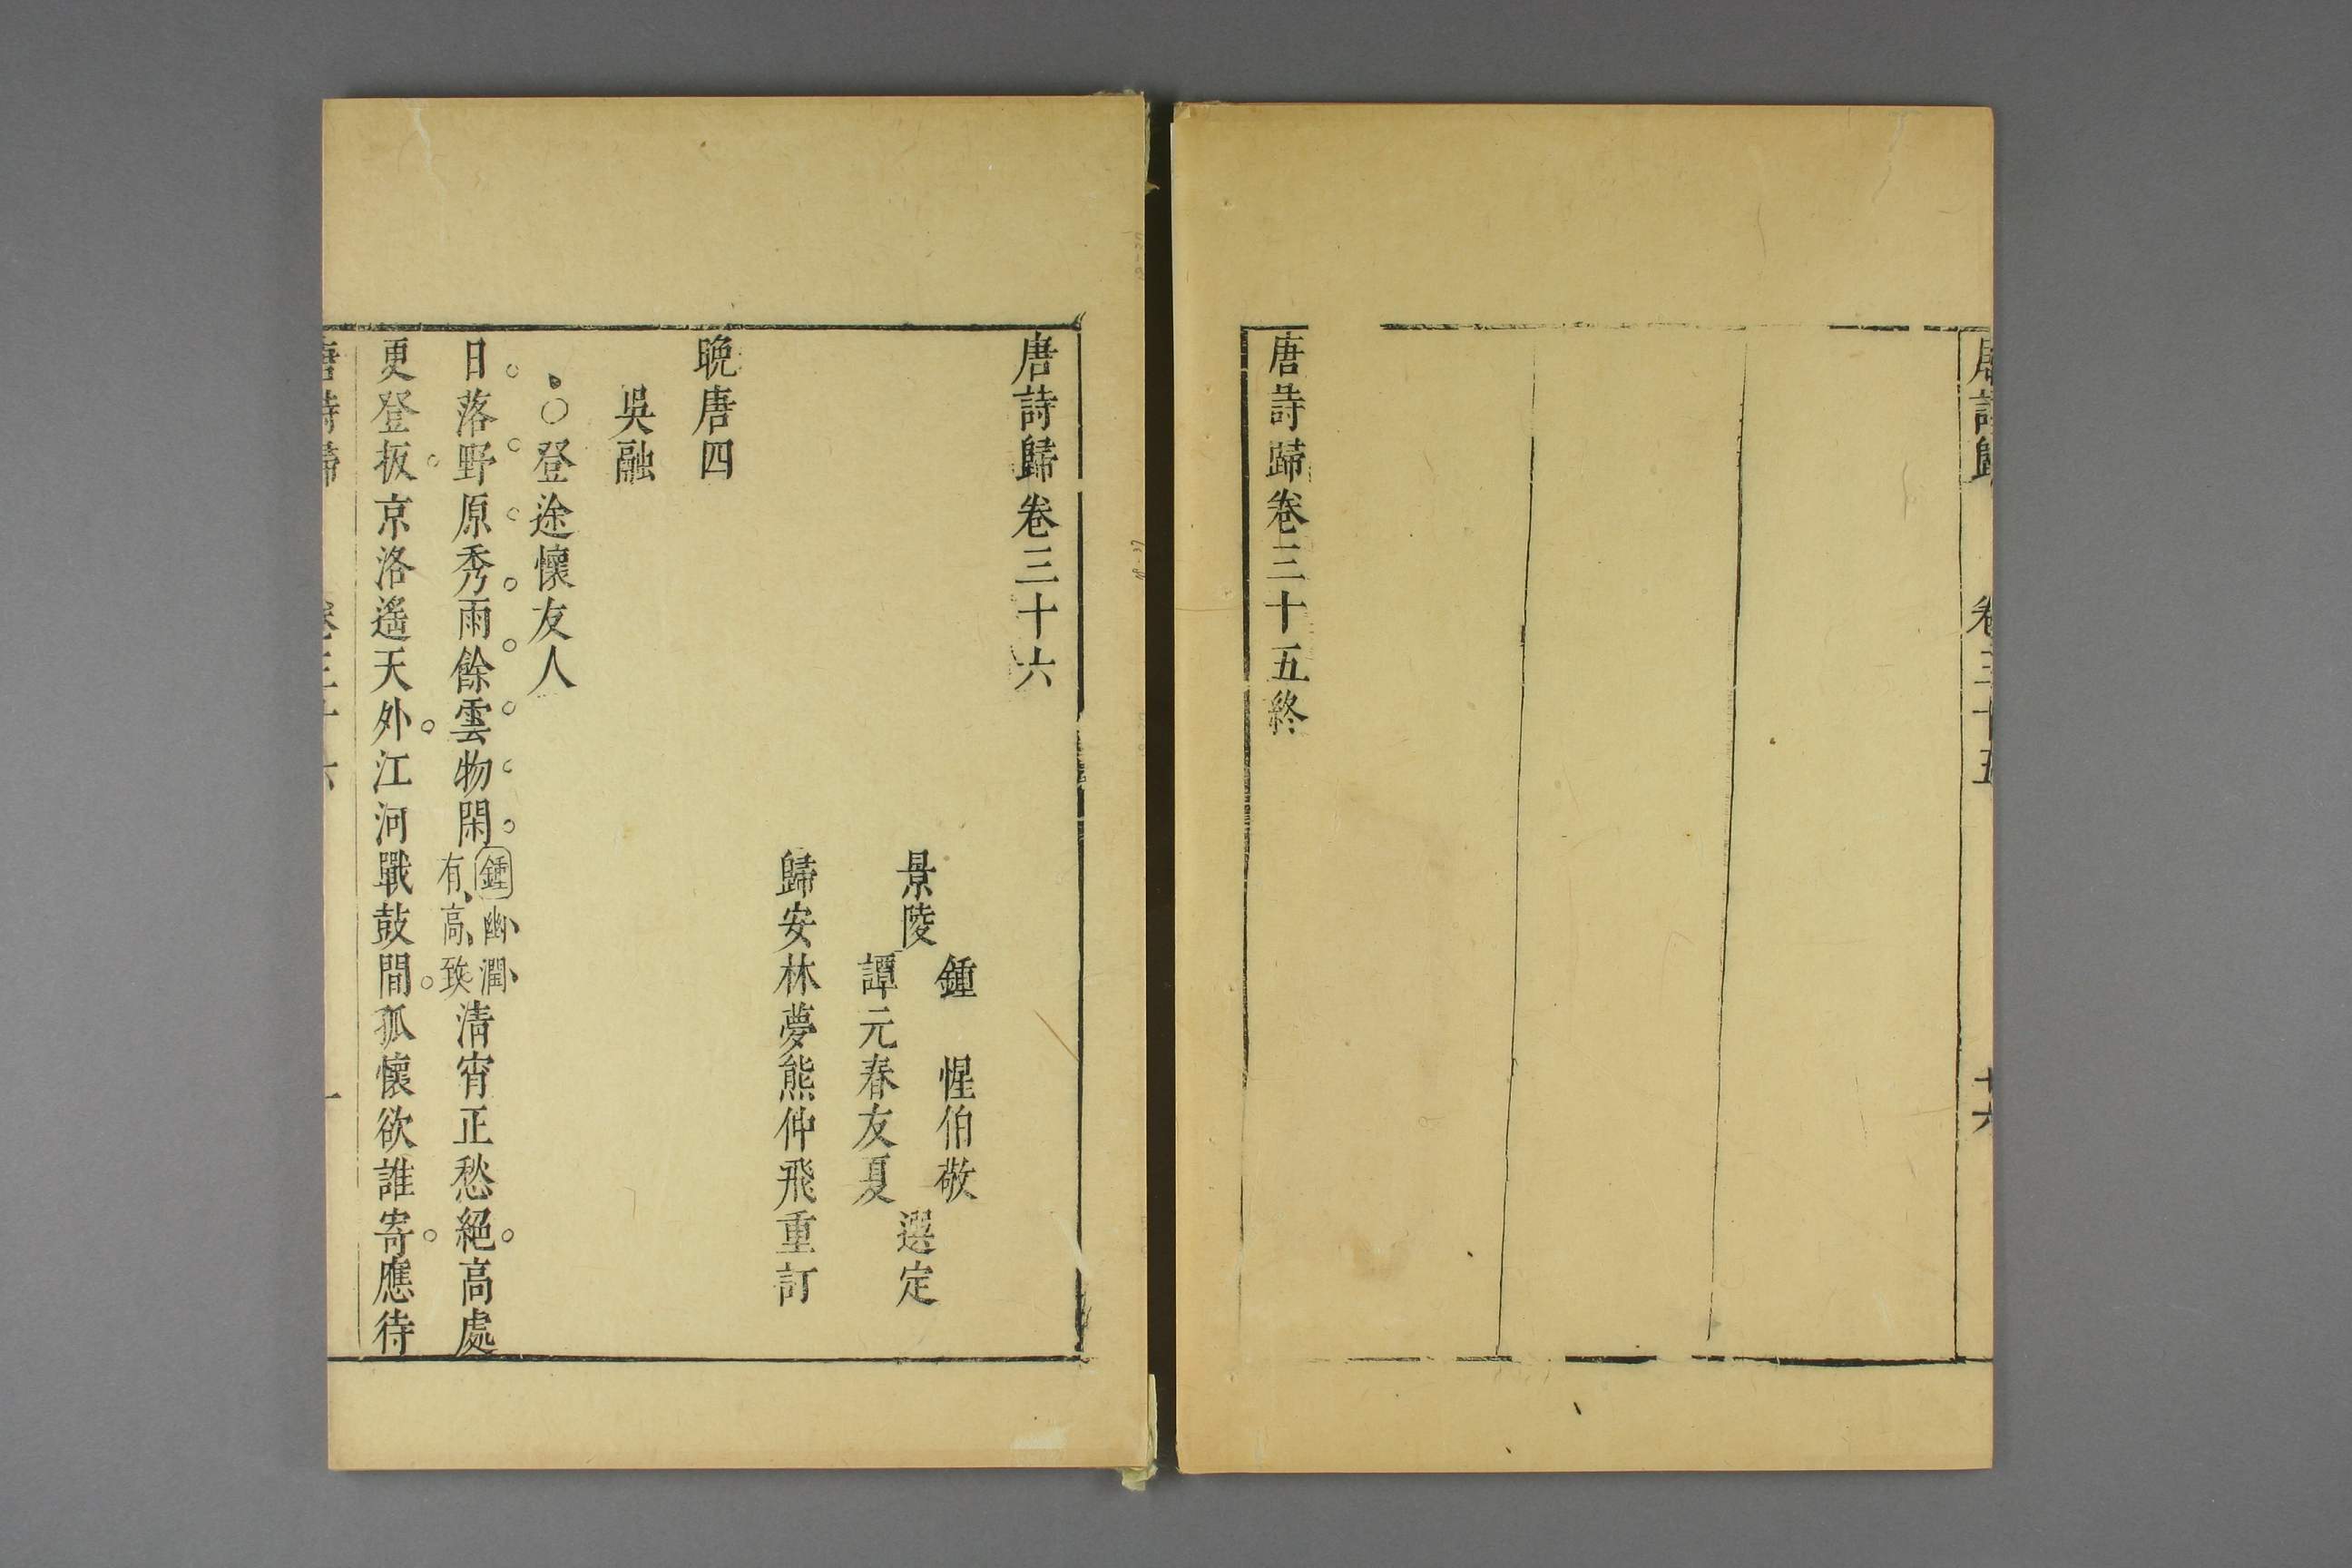 唐詩歸 卷三十五 廿六
唐詩歸卷三十五終
唐詩歸卷三十六
鍾 惺伯敬
景陵 選定
譚元春友夏
歸安林夢熊仲飛重訂
晚唐四
吳融
○登途懷友人
日落野原秀雨餘雲物閑鍾幽潤有高致清宵正愁絕高處
更登扳京洛遙天外江河戰鼓間孤懷欲誰寄應待
唐詩歸 卷三十六 一